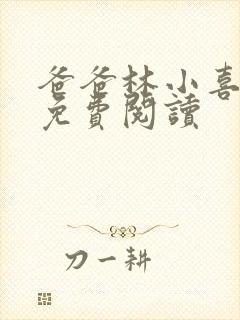 爸爸林小喜
免費閱讀
刀一耕